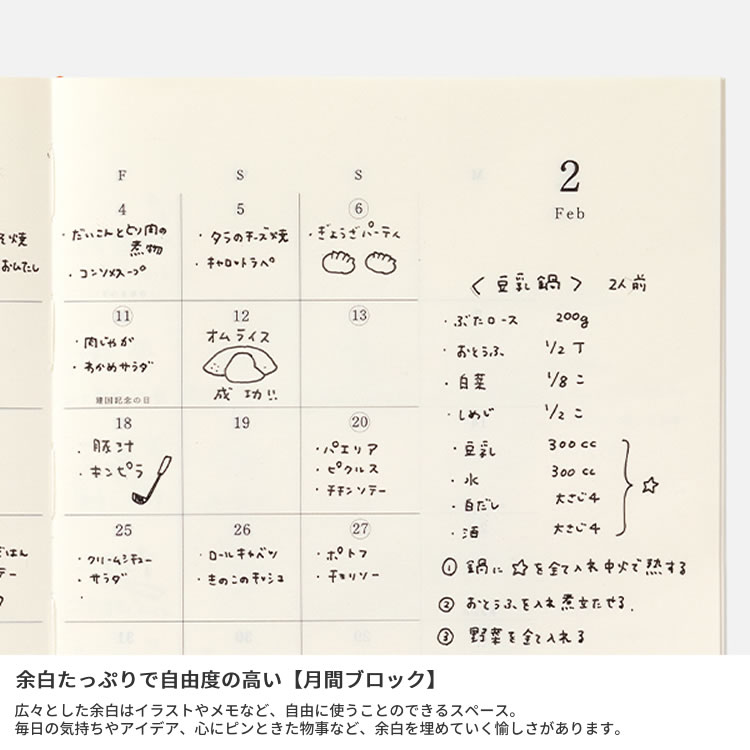 2
Feb
F S S
4 5 ⑥
・だいこんとひき肉の
煮物
・コンソメスープ
・タラのチーズ焼
・キャロットラペ
・ぎょうざパーティ
焼
おひたし
⑪ 12 ⑬
・肉じゃが
・わかめサラダ
建国記念の日
オムライス
成功!!
18 19 ⑳
・豚汁
・キンピラ
・パエリア
・ピクルス
・チキンソテー
25 26 ㉗
・クリームシチュー
・サラダ
・ロールキャベツ
・きのこのキッシュ
・ポトフ
・チョリソー
ごはん
テー
〈豆乳鍋〉 2人前
・ぶたロース 200g
・おとうふ 1/2 丁
・白菜 1/8 コ
・しめじ 1/2 コ
・豆乳 300cc
・水 300cc
・白だし 大さじ4
・酒 大さじ4
☆
① 鍋に☆を全て入れ中火で熱する
② おとうふを入れ煮立たせる.
③ 野菜を全て入れる
余白たっぷりで自由度の高い【月間ブロック】
広々とした余白はイラストやメモなど、自由に使うことのできるスペース。
毎日の気持ちやアイデア、心にピンときた物事など、余白を埋めていく愉しさがあります。